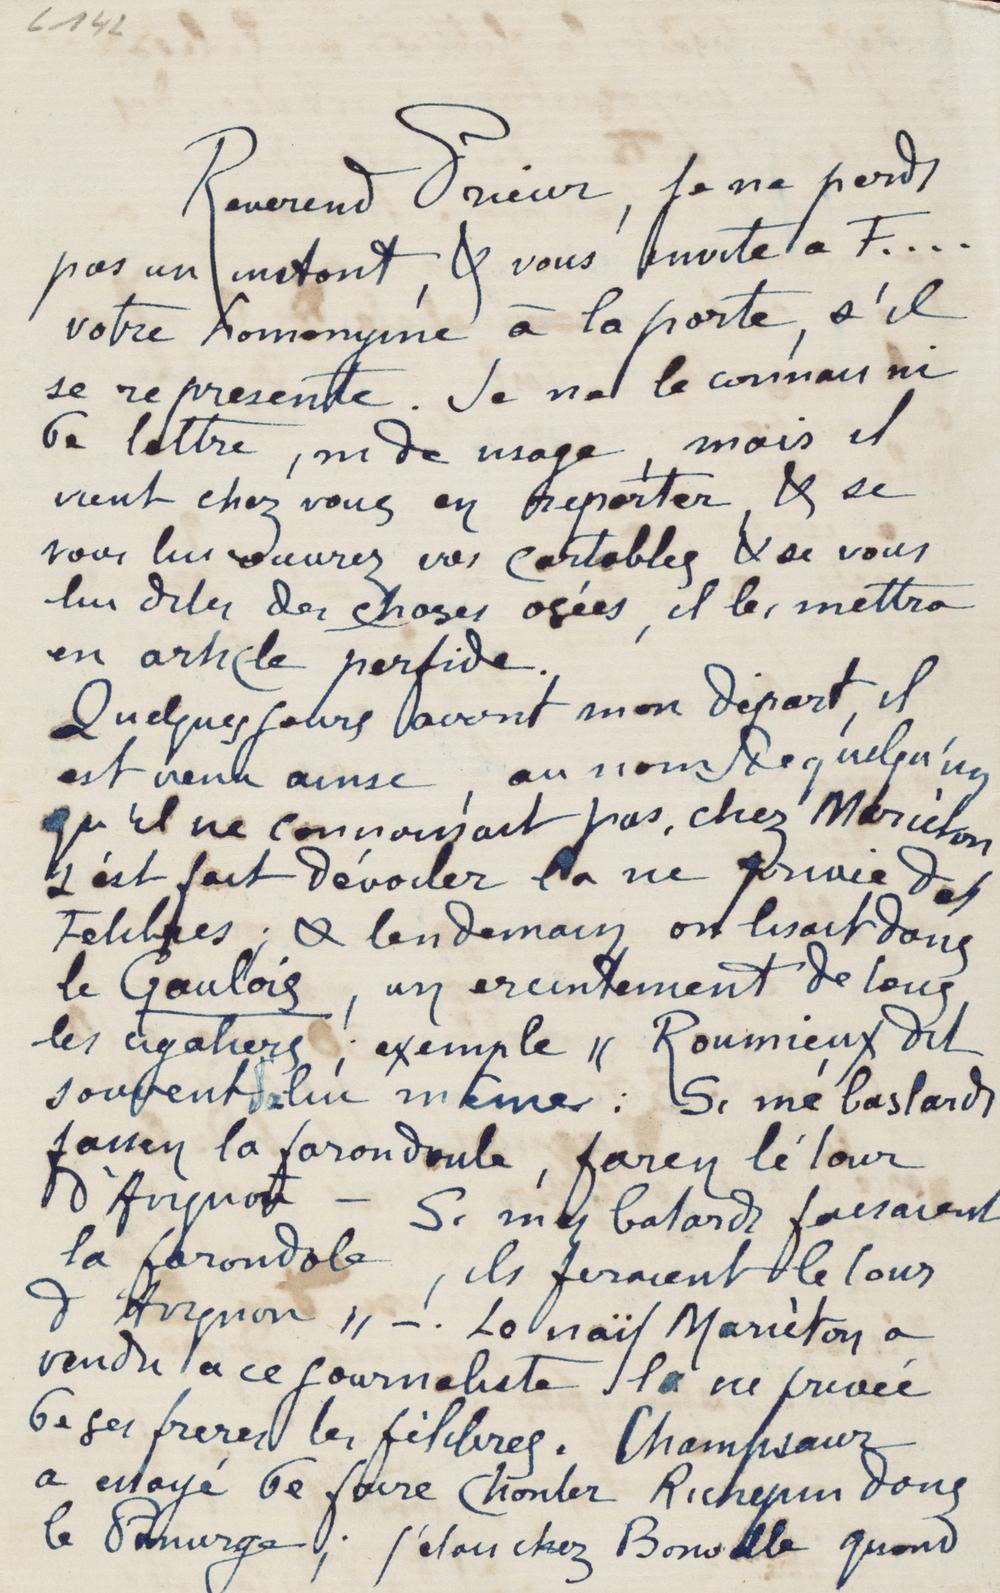 6142
Reverend Prieur, Je ne perds
pas un instant, & vous invite a F....
votre homonyme à la porte, s'il
se represente. Je ne le connais ni
de lettre, ni de usage, mais il
vient chez vous en reporter, & se
vous lui ouvrez vos cartables & se vous
lui dites des choses osées, il les mettra
en article perfide.
Quelques jours avant mon départ, il
est venu ainse, au nom de quelqu'un
qu'il ne connaissait pas, chez Mariéton
s'est fait dévoiler la vie privée des
Felibres; & lendemain on lisait dans
le Gaulois, un ereintement de tous
les cigaliers; exemple " Roumieux dit
souvent de lui même : Si mé bastards
fassen la farondoule, faren lé tour
d'Avignon — Si mes batards faisaient
la farondole, ils feraient le tour
d'Avignon " —. Le naïf Mariéton a
vendu a ce journaliste la vie privée
de ses freres les félibres. Champsaur
a essayé de faire chanter Richepin dans
le Panurge; j'étais chez quand